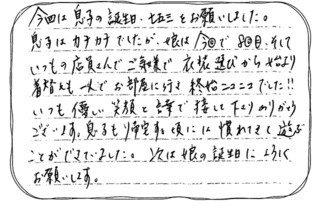 今回は息子の誕生日・七五三をお願いしました。
息子はカチカチでしたが、娘は今回で8回目、そして
いつもの店員さんでご幸様で 衣裳選びから 始まり
着替えも 一人でお部屋に行き 終始ニコニコでした!!
いつも優しい笑顔と言葉で接して下さりありがとう
ございます。息子も 頃には慣れてきて 遊ぶ
ことができていました。次は娘の誕生日によろしく
お願いします。